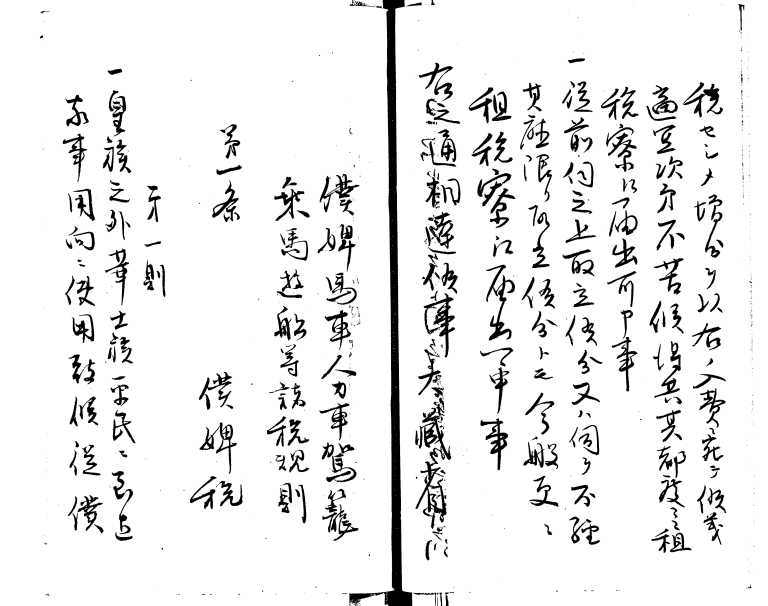 税セシメ増分ヲ以右ノ入費ニ充テ候儀
適宜次第不苦候得共其都度々々租
税寮江届出可申事
一従前伺之上取立候分又ハ伺ヲ不経
其庁限リ取立候分トモ今般更ニ
租税寮江届出可申事
右之通相達候事
僕婢馬車人力車駕籠
乗馬遊船等諸税規則
第一条 僕婢税
第一則
一皇族之外華士族平民ニ至迄
家事用向ニ使用致候従僕